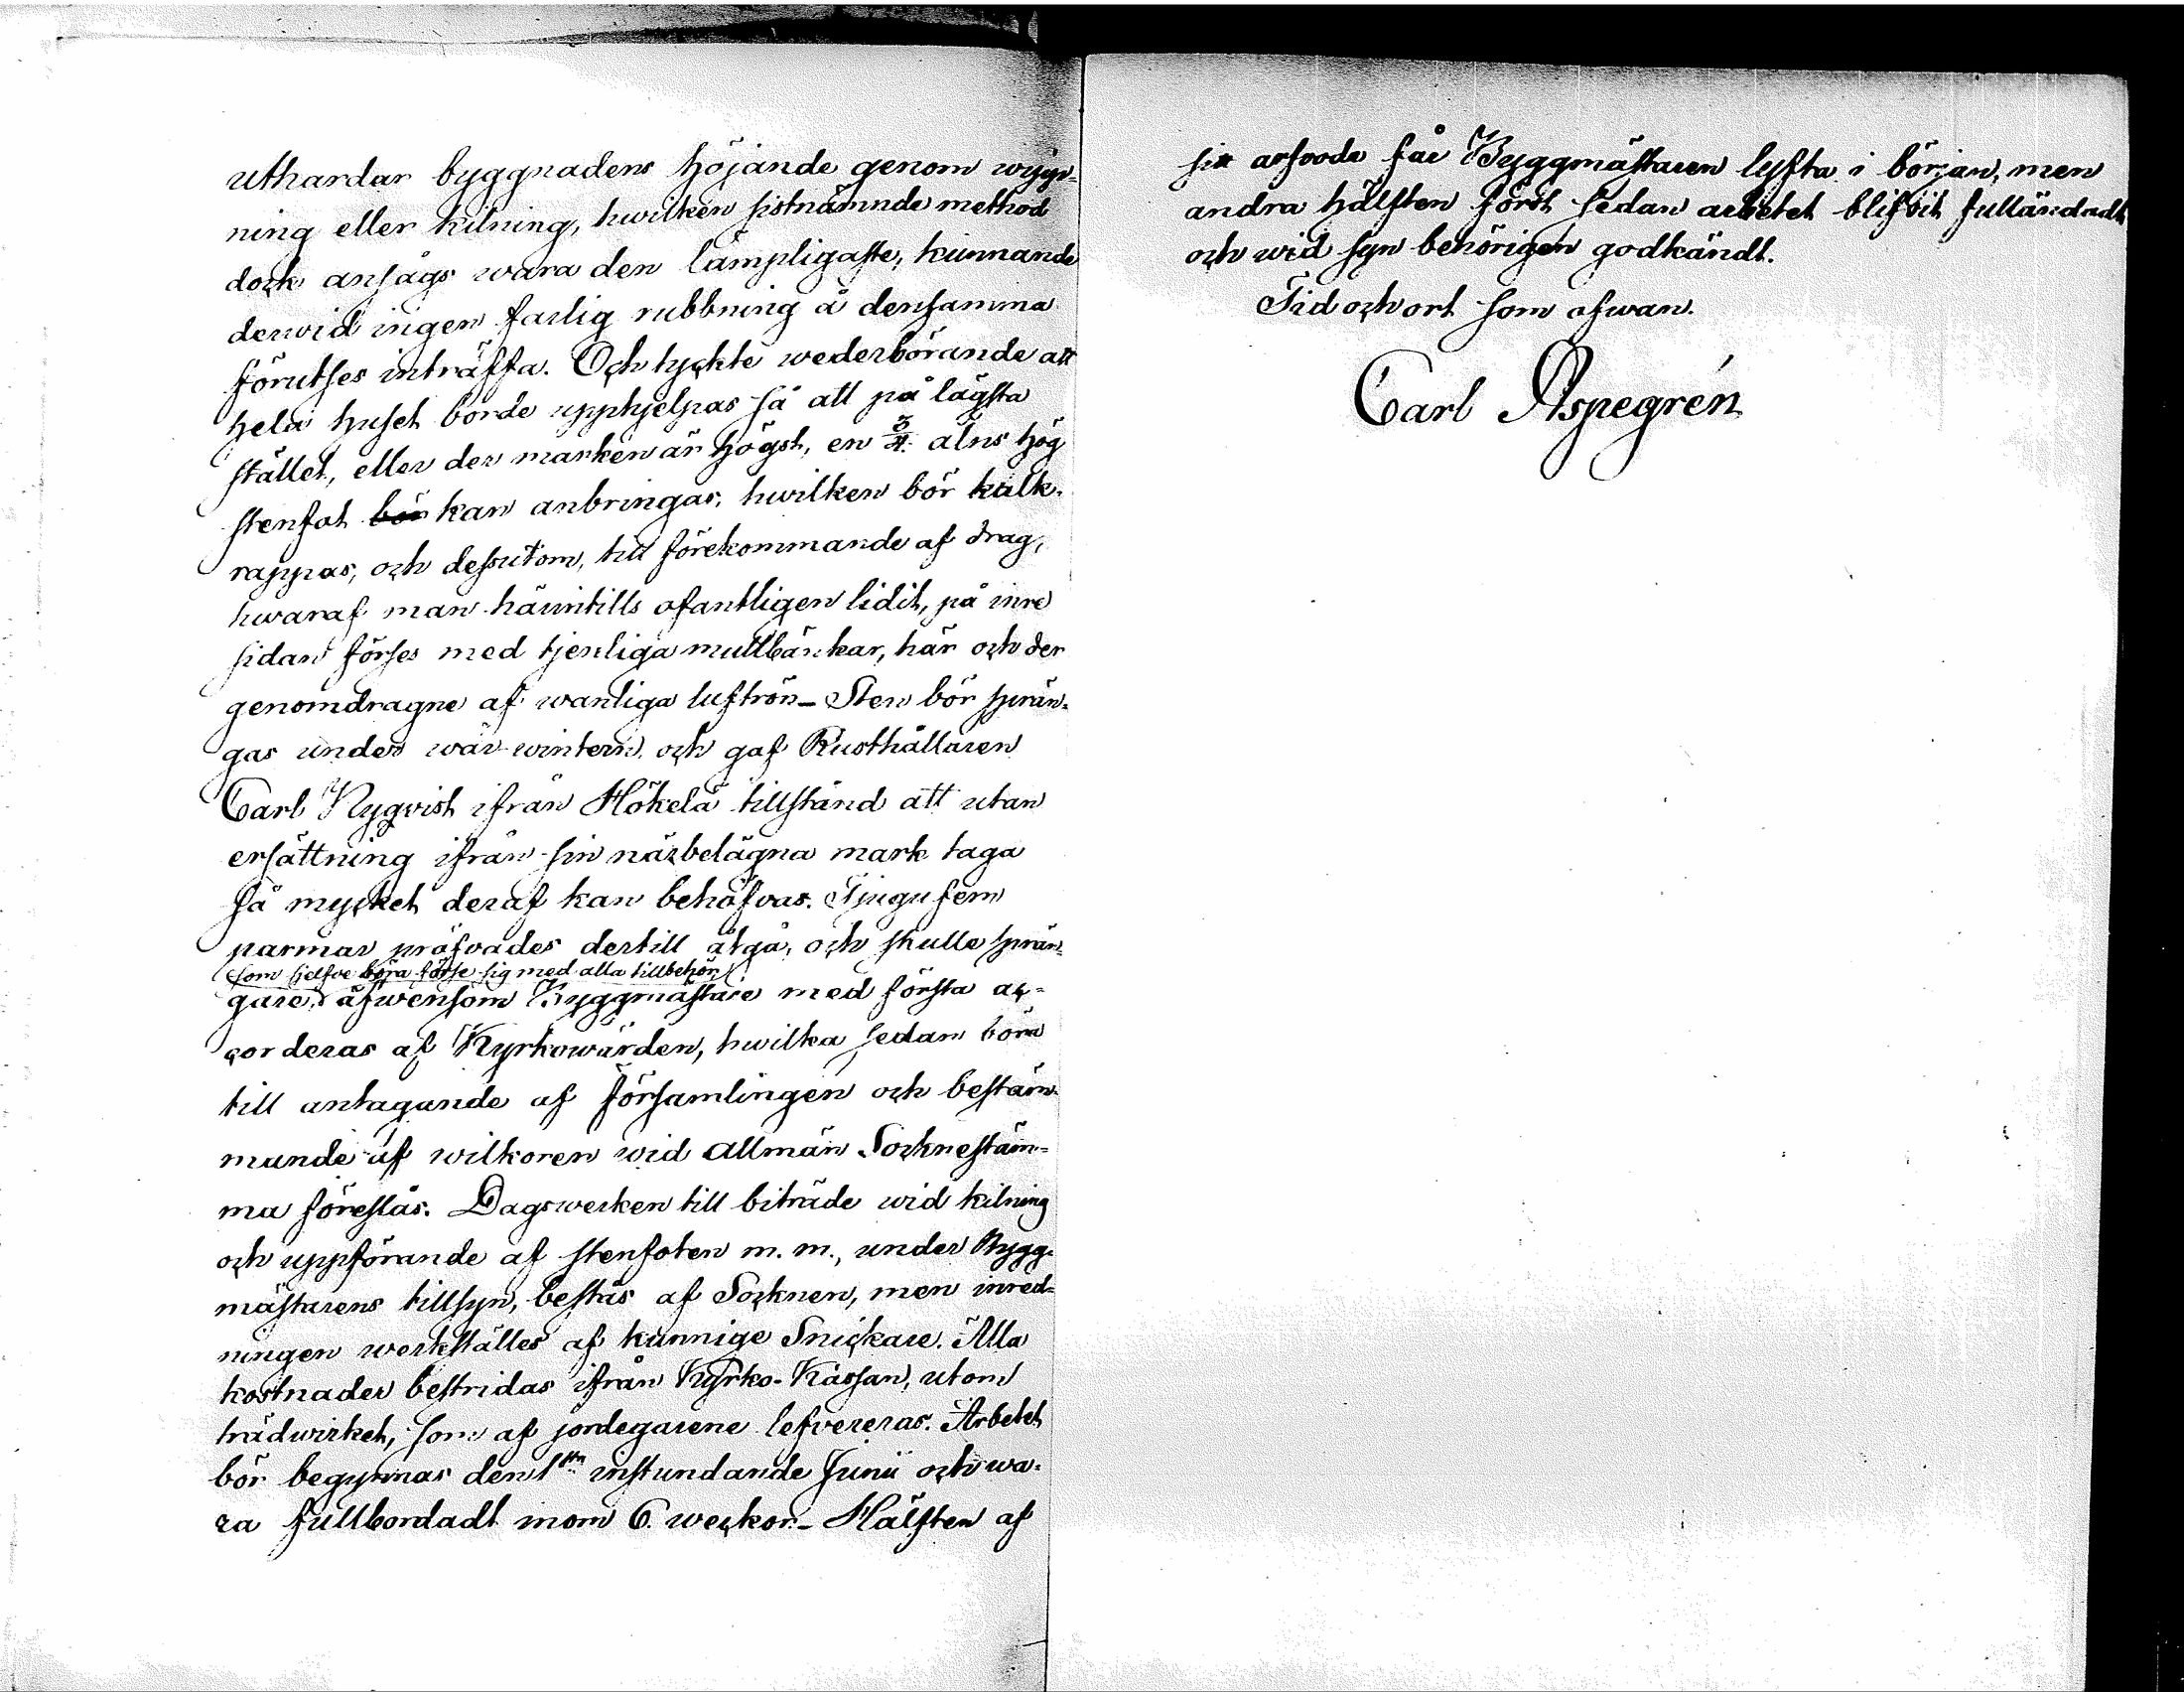 uthardar byggnadens höjande genom wyg-
ning eller kilning, hwilken sistnämnde method
dock ansågs wara den lämpligaste, kunnande
derwid ingen farlig rubbning å densamma
förutses inträffa. Och tyckte wederbörande att
hela huset borde upphjelpas så att på lägsta
stället, eller der marken är högst, en 3/4 alns hög
stenfot bör kan anbringas, hwilken bör kalk-
rappas, och dessutom, till förekommande af drag,
hwaraf man härintills ofantligen lidit, på inre
sidan förses med tjenliga mullbänkar, här och der
genomdragne af wanliga luftrör_ Sten bör sprän-
gas under wår-wintern, och gaf Rusthållaren
Carl Nyqvist ifrån Hökelä tillstånd att utan
ersättning ifrån sin närbelägna mark taga
så mycket deraf kan behöfvas. Tjugufem
parmar pröfvades dertill åtgå, och skulle sprän-
som sjelfve böra förse sig med alla tillbehör
gare, äfwensom Byggmästare med första ac-
corderas af Kyrkowärden, hwilka sedan böra
till antagande af församlingen och bestäm-
mande af wilkoren wid allmän Sockneståm-
ma föreslås. Dagswerken till biträde wid kilning
och uppförande af stenfoten m. m., under Bygg-
mästarens tillsyn, bestås af Socknen, men inred-
ningen werkställes af kunnige Snickare. Alla
kostnader bestridas ifrån Kyrko-Kassan, utom
trädwirket, som af jordegarene lefvereras. Arbetet
bör begynnas den 1sta instundande Junii och wa-
ra fullbordadt inom 6 weckor._ Hälften af
sitt arfvode får Byggmästaren lyfta i början, men
andra hälften först sedan arbetet blifvit fulländadt
och wid syn behörigen godkändt.
Tid och ort som ofwan.
Carl Aspegrén